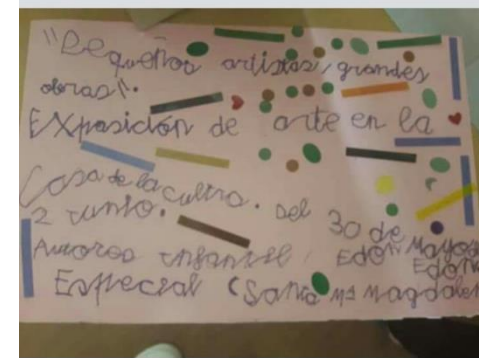 "Pequeños artistas, grandes
obras".
Exposición de arte en la
Casa de la cultura. Del 30 de Mayo
2 Junio.
Autores infantil, EDON EDON
Especial (Santa Mª Magdalen